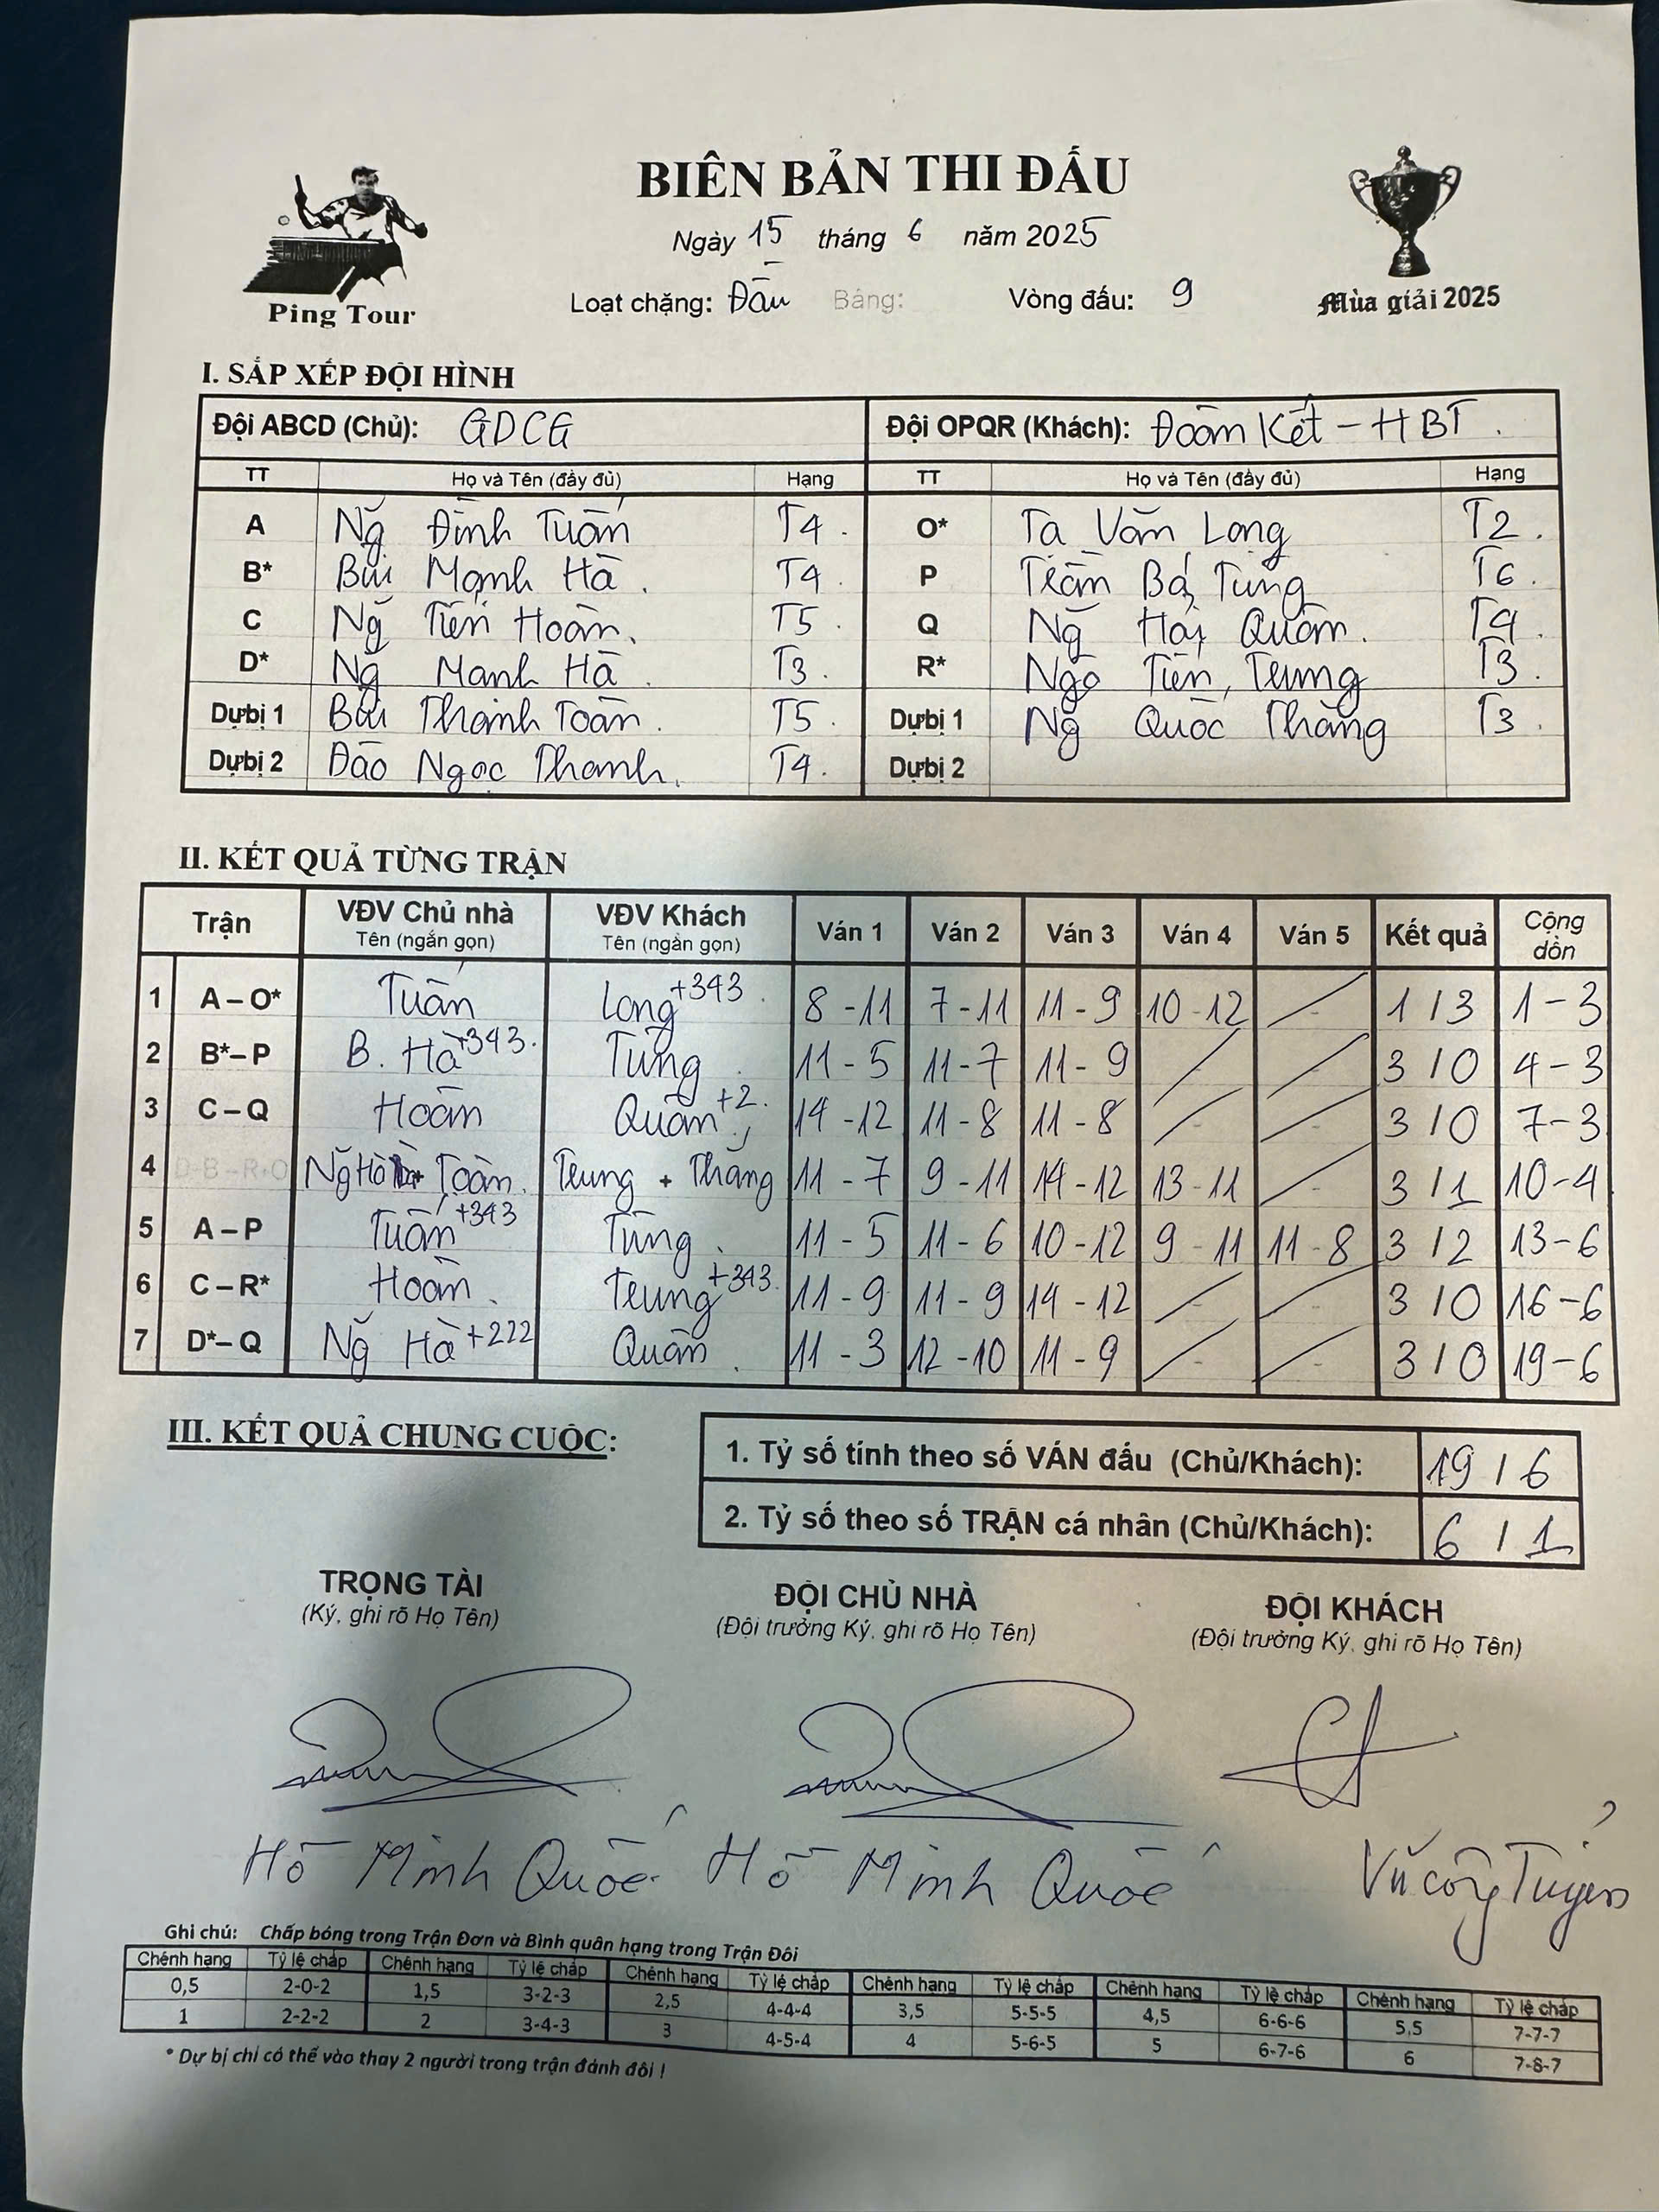 BIÊN BẢN THI ĐẤU
Ngày 15 tháng 6 năm 2025
Loạt chặng: Đấu Bảng: Vòng đấu: 9
Ping Tour
Mùa giải 2025
I. SẮP XẾP ĐỘI HÌNH
Đội ABCD (Chủ): GDCG Đội OPQR (Khách): Đoàn Kết - HBT.
TT Họ và Tên (đầy đủ) Hạng TT Họ và Tên (đầy đủ) Hạng
A Ng Đình Tuấn T4. O* Tạ Văn Long T2.
B* Bùi Mạnh Hà. T4. P Trần Bá Tùng T6.
C Ng Tiến Hoàn. T5. Q Ng Hải Quân. T4.
D* Ng Mạnh Hà. T3. R* Ngô Tiến Trung T3.
Dựbị 1 Bùi Thanh Toàn. T5. Dựbị 1 Ng Quốc Thắng T3.
Dựbị 2 Đào Ngọc Thanh. T4. Dựbị 2
II. KẾT QUẢ TỪNG TRẬN
Trận VĐV Chủ nhà VĐV Khách Ván 1 Ván 2 Ván 3 Ván 4 Ván 5 Kết quả Cộng dồn
Tên (ngắn gọn) Tên (ngắn gọn)
1 A – O* Tuấn Long +343. 8 - 11 7 - 11 11 - 9 10 - 12 - 1 / 3 1 - 3
2 B* – P B. Hà +343. Tùng. 11 - 5 11 - 7 11 - 9 3 / 0 4 - 3
3 C – Q Hoàn Quân +2. 14 - 12 11 - 8 11 - 8 - - 3 / 0 7 - 3
4 D+B – R+O Ng Hà + Toàn. Trung + Thắng 11 - 7 9 - 11 14 - 12 13 - 11 - 3 / 1 10 - 4
5 A – P Tuấn +343 Tùng. 11 - 5 11 - 6 10 - 12 9 - 11 11 - 8 3 / 2 13 - 6
6 C – R* Hoàn. Trung +343. 11 - 9 11 - 9 14 - 12 - - 3 / 0 16 - 6
7 D* – Q Ng Hà +222 Quân. 11 - 3 12 - 10 11 - 9 - - 3 / 0 19 - 6
III. KẾT QUẢ CHUNG CUỘC:
1. Tỷ số tính theo số VÁN đấu (Chủ/Khách): 19 / 6
2. Tỷ số theo số TRẬN cá nhân (Chủ/Khách): 6 / 1
TRỌNG TÀI ĐỘI CHỦ NHÀ ĐỘI KHÁCH
(Ký, ghi rõ Họ Tên) (Đội trưởng Ký, ghi rõ Họ Tên) (Đội trưởng Ký, ghi rõ Họ Tên)
Hồ Minh Quốc Hồ Minh Quốc Vũ Công Tuyển
Ghi chú: Chấp bóng trong Trận Đơn và Bình quân hạng trong Trận Đôi
Chênh hạng Tỷ lệ chấp Chênh hạng Tỷ lệ chấp Chênh hạng Tỷ lệ chấp Chênh hạng Tỷ lệ chấp Chênh hạng Tỷ lệ chấp Chênh hạng Tỷ lệ chấp
0,5 2-0-2 1,5 3-2-3 2,5 4-4-4 3,5 5-5-5 4,5 6-6-6 5,5 7-7-7
1 2-2-2 2 3-4-3 3 4-5-4 4 5-6-5 5 6-7-6 6 7-8-7
* Dự bị chỉ có thể vào thay 2 người trong trận đánh đôi !